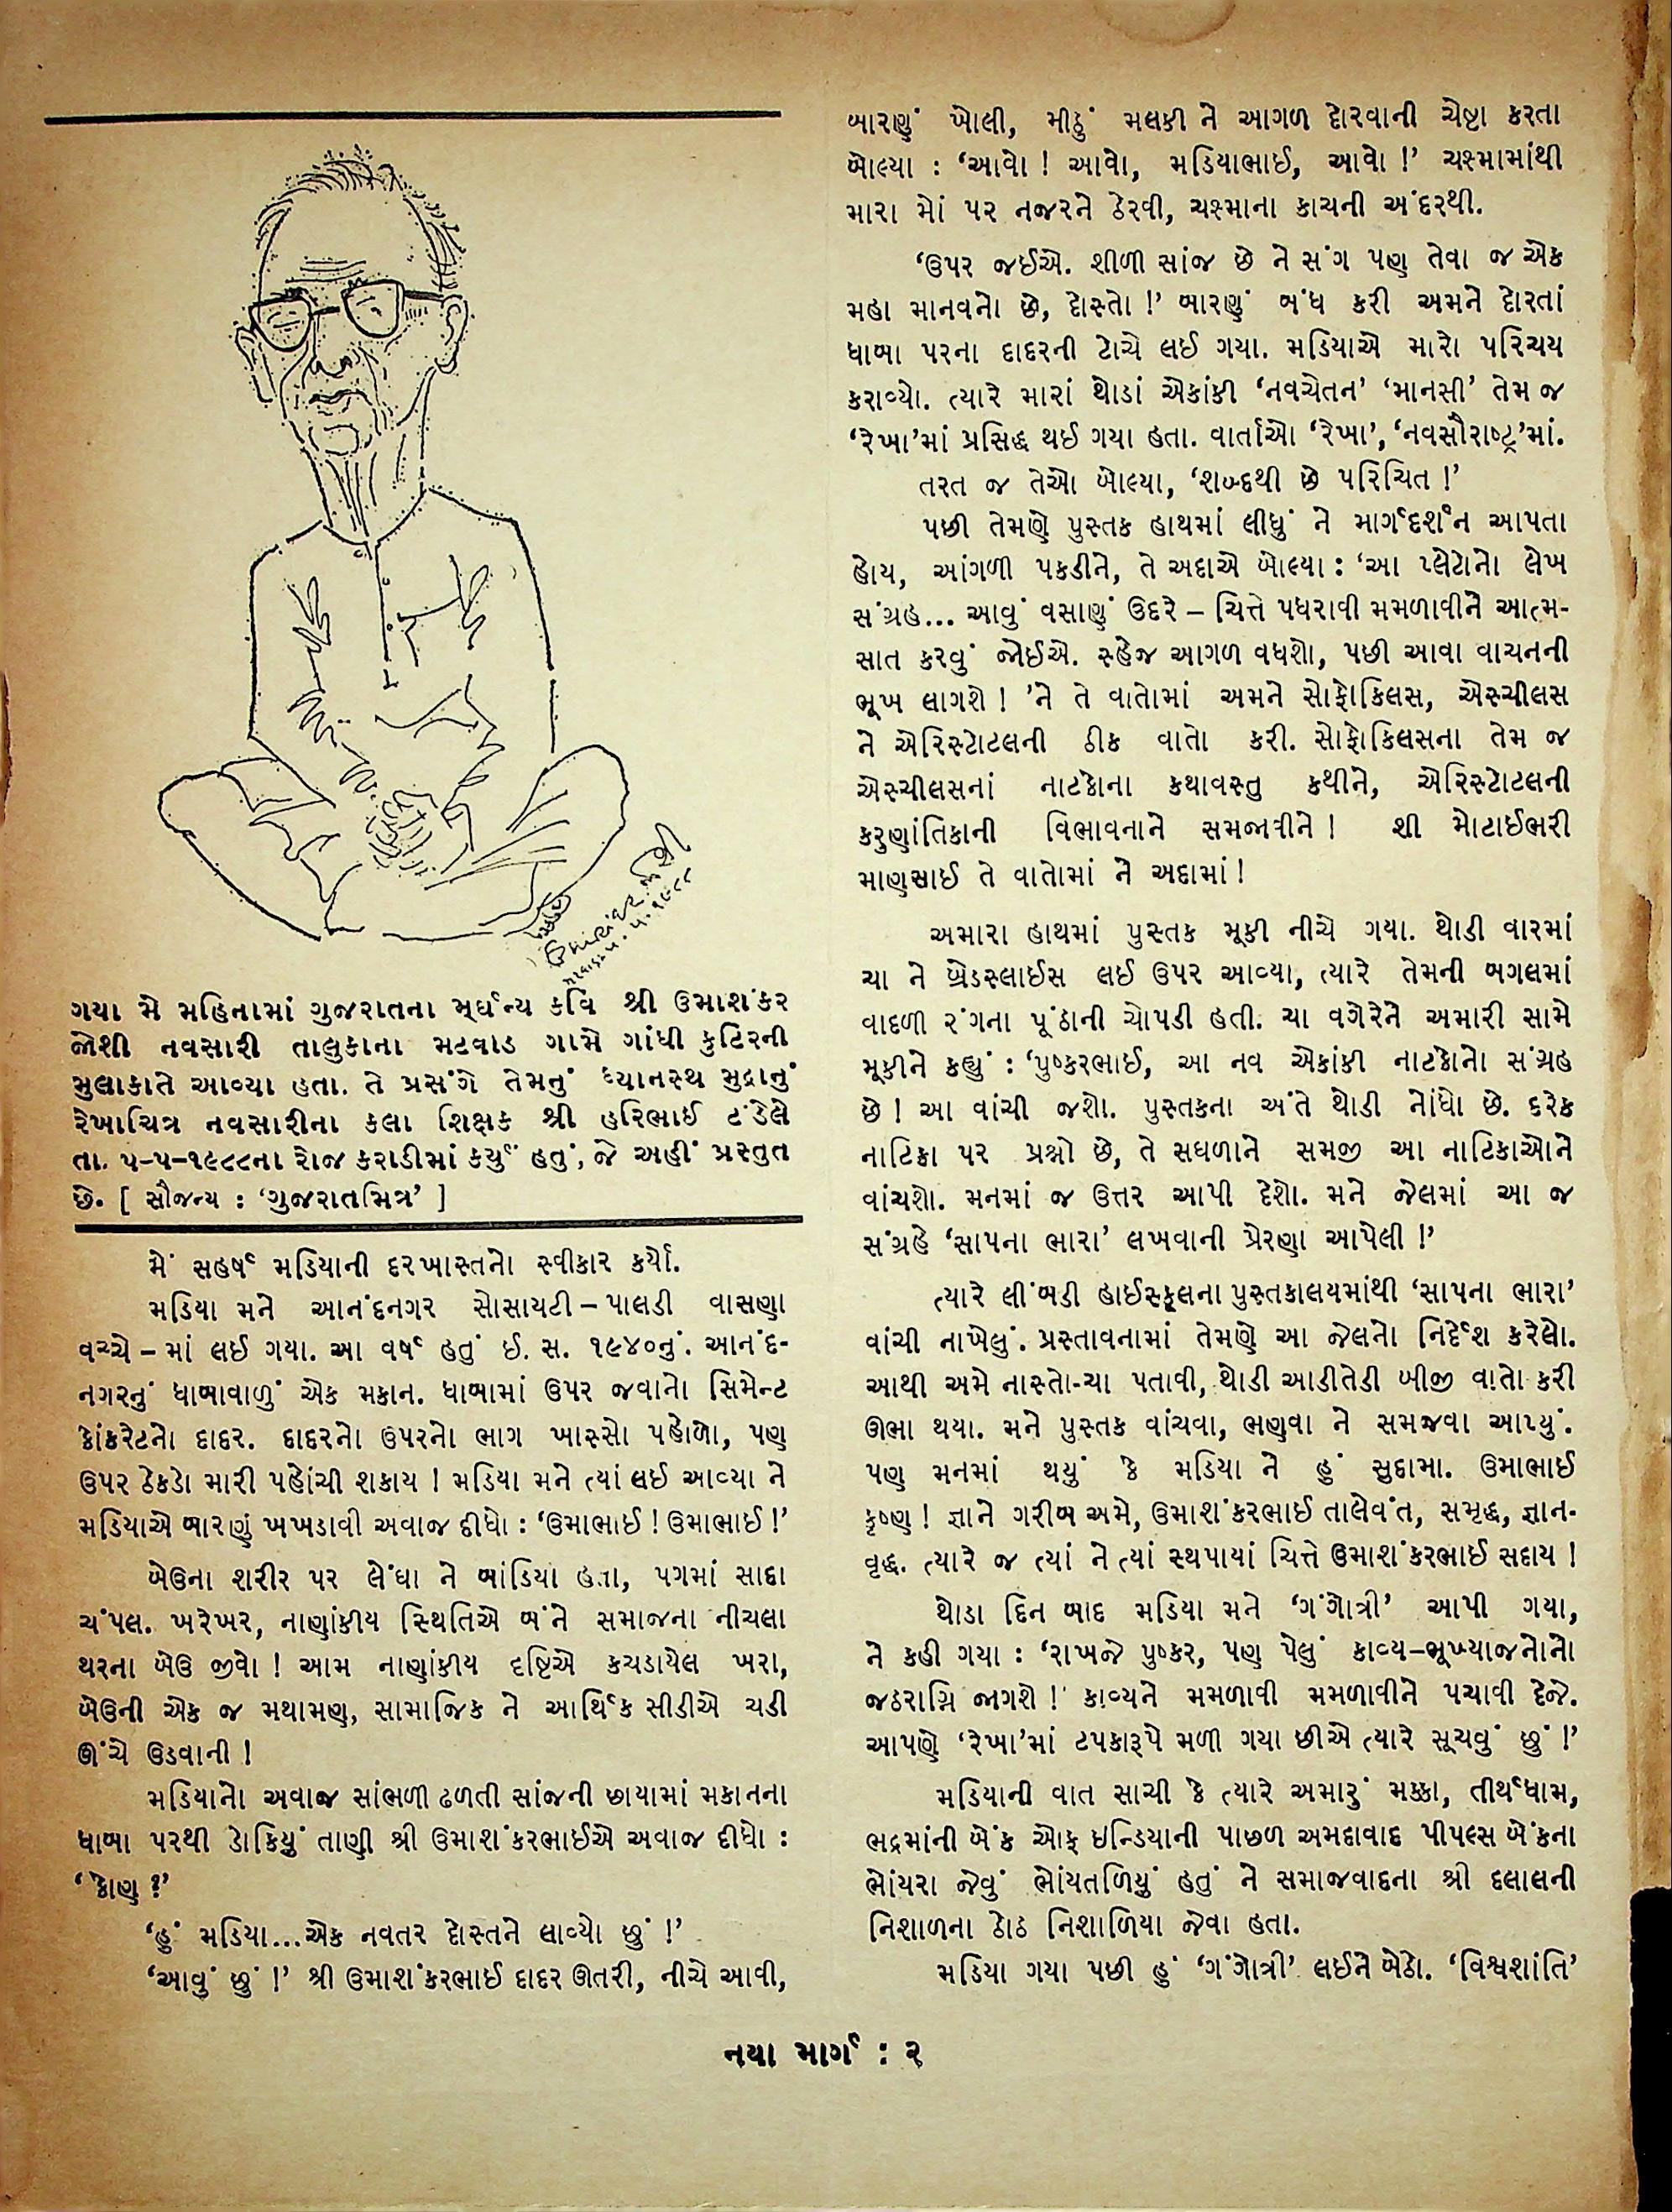 ગયા મે મહિનામાં ગુજરાતના મૂર્ધન્ય કવિ શ્રી ઉમાશંકર
જોશી નવસારી તાલુકાના મટવાડ ગામે ગાંધી કુટિરની
મુલાકાતે આવ્યા હતા. તે પ્રસંગે તેમનું ધ્યાનસ્થ મુદ્રાનું
રેખાચિત્ર નવસારીના કલા શિક્ષક શ્રી હરિભાઈ ટંડેલે
તા. ૫-૫-૧૯૮૮ના રોજ કરાડીમાં કર્યું હતું, જે અહીં પ્રસ્તુત
છે. [ સૌજન્ય : ‘ગુજરાતમિત્ર’ ]
મેં સહર્ષ મડિયાની દરખાસ્તનો સ્વીકાર કર્યો.
મડિયા મને આનંદનગર સોસાયટી – પાલડી વાસણા
વચ્ચે – માં લઈ ગયા. આ વર્ષ હતું ઈ. સ. ૧૯૪૦નું. આનંદ-
નગરનું ધાબાવાળું એક મકાન. ધાબામાં ઉપર જવાનો સિમેન્ટ
કોંકરેટનો દાદર. દાદરનો ઉપરનો ભાગ ખાસ્સો પહોળો, પણ
ઉપર ઠેકડો મારી પહોંચી શકાય ! મડિયા મને ત્યાં લઈ આવ્યા ને
મડિયાએ બારણું ખખડાવી અવાજ દીધો : ‘ઉમાભાઈ ! ઉમાભાઈ !’
બેઉના શરીર પર લેંઘા ને બાંડિયા હતા, પગમાં સાદા
ચંપલ. ખરેખર, નાણાંકીય સ્થિતિએ બંને સમાજના નીચલા
થરના બેઉ જીવો ! આમ નાણાંકીય દૃષ્ટિએ કચડાયેલ ખરા,
બેઉની એક જ મથામણ, સામાજિક ને આર્થિક સીડીએ ચડી
ઊંચે ઉડવાની !
મડિયાનો અવાજ સાંભળી ઢળતી સાંજની છાયામાં મકાનના
ધાબા પરથી ડોકિયું તાણી શ્રી ઉમાશંકરભાઈએ અવાજ દીધો :
‘કોણ ?’
‘હું મડિયા...એક નવતર દોસ્તને લાવ્યો છું !’
‘આવું છું !’ શ્રી ઉમાશંકરભાઈ દાદર ઊતરી, નીચે આવી,
બારણું ખોલી, મીઠું મલકી ને આગળ દોરવાની ચેષ્ટા કરતા
બોલ્યા : ‘આવો ! આવો, મડિયાભાઈ, આવો !’ ચશ્મામાંથી
મારા મોં પર નજરને ઠેરવી, ચશ્માના કાચની અંદરથી.
‘ઉપર જઈએ. શીળી સાંજ છે ને સંગ પણ તેવા જ એક
મહા માનવનો છે, દોસ્તો !’ બારણું બંધ કરી અમને દોરતાં
ધાબા પરના દાદરની ટોચે લઈ ગયા. મડિયાએ મારો પરિચય
કરાવ્યો. ત્યારે મારાં થોડાં એકાંકી ‘નવચેતન’ ‘માનસી’ તેમ જ
‘રેખા’માં પ્રસિદ્ધ થઈ ગયા હતા. વાર્તાઓ ‘રેખા’, ‘નવસૌરાષ્ટ્ર’માં.
તરત જ તેઓ બોલ્યા, ‘શબ્દથી છે પરિચિત !’
પછી તેમણે પુસ્તક હાથમાં લીધું ને માર્ગદર્શન આપતા
હોય, આંગળી પકડીને, તે અદાએ બોલ્યા : ‘આ પ્લેટોનો લેખ
સંગ્રહ... આવું વસાણું ઉદરે – ચિત્તે પધરાવી મમળાવીને આત્મ-
સાત કરવું જોઈએ. સ્હેજ આગળ વધશો, પછી આવા વાચનની
ભૂખ લાગશે ! ’ને તે વાતોમાં અમને સોફોકિલસ, એસ્ચીલસ
ને એરિસ્ટોટલની ઠીક વાતો કરી. સોફોકિલસના તેમ જ
એસ્ચીલસનાં નાટકોના કથાવસ્તુ કથીને, એરિસ્ટોટલની
કરુણાંતિકાની વિભાવનાને સમજાવીને ! શી મોટાઈભરી
માણસાઈ તે વાતોમાં ને અદામાં !
અમારા હાથમાં પુસ્તક મૂકી નીચે ગયા. થોડી વારમાં
ચા ને બ્રેડસ્લાઈસ લઈ ઉપર આવ્યા, ત્યારે તેમની બગલમાં
વાદળી રંગના પૂંઠાની ચોપડી હતી. ચા વગેરેને અમારી સામે
મૂકીને કહ્યું : ‘પુષ્કરભાઈ, આ નવ એકાંકી નાટકોનો સંગ્રહ
છે ! આ વાંચી જશો. પુસ્તકના અંતે થોડી નોંધો છે. દરેક
નાટિકા પર પ્રશ્નો છે, તે સઘળાને સમજી આ નાટિકાઓને
વાંચશો. મનમાં જ ઉત્તર આપી દેશો. મને જેલમાં આ જ
સંગ્રહે ‘સાપના ભારા’ લખવાની પ્રેરણા આપેલી !’
ત્યારે લીંબડી હાઈસ્કૂલના પુસ્તકાલયમાંથી ‘સાપના ભારા’
વાંચી નાખેલું. પ્રસ્તાવનામાં તેમણે આ જેલનો નિર્દેશ કરેલો.
આથી અમે નાસ્તો-ચા પતાવી, થોડી આડીતેડી બીજી વાતો કરી
ઊભા થયા. મને પુસ્તક વાંચવા, ભણવા ને સમજવા આપ્યું.
પણ મનમાં થયું કે મડિયા ને હું સુદામા. ઉમાભાઈ
કૃષ્ણ ! જ્ઞાને ગરીબ અમે, ઉમાશંકરભાઈ તાલેવંત, સમૃદ્ધ, જ્ઞાન-
વૃદ્ધ. ત્યારે જ ત્યાં ને ત્યાં સ્થપાયાં ચિત્તે ઉમાશંકરભાઈ સદાય !
થોડા દિન બાદ મડિયા મને ‘ગંગોત્રી’ આપી ગયા,
ને કહી ગયા : ‘રાખજે પુષ્કર, પણ પેલું કાવ્ય-ભૂખ્યાજનોનો
જઠરાગ્નિ જાગશે !’ કાવ્યને મમળાવી મમળાવીને પચાવી દેજે.
આપણે ‘રેખા’માં ટપકારૂપે મળી ગયા છીએ ત્યારે સૂચવું છું !’
મડિયાની વાત સાચી કે ત્યારે અમારું મક્કા, તીર્થધામ,
ભદ્રમાંની બેંક ઓફ ઇન્ડિયાની પાછળ અમદાવાદ પીપલ્સ બેંકના
ભોંયરા જેવું ભોંયતળિયું હતું ને સમાજવાદના શ્રી દલાલની
નિશાળના ઠોઠ નિશાળિયા જેવા હતા.
મડિયા ગયા પછી હું ‘ગંગોત્રી’ લઈને બેઠો. ‘વિશ્વશાંતિ’
નયા માર્ગ : ૨